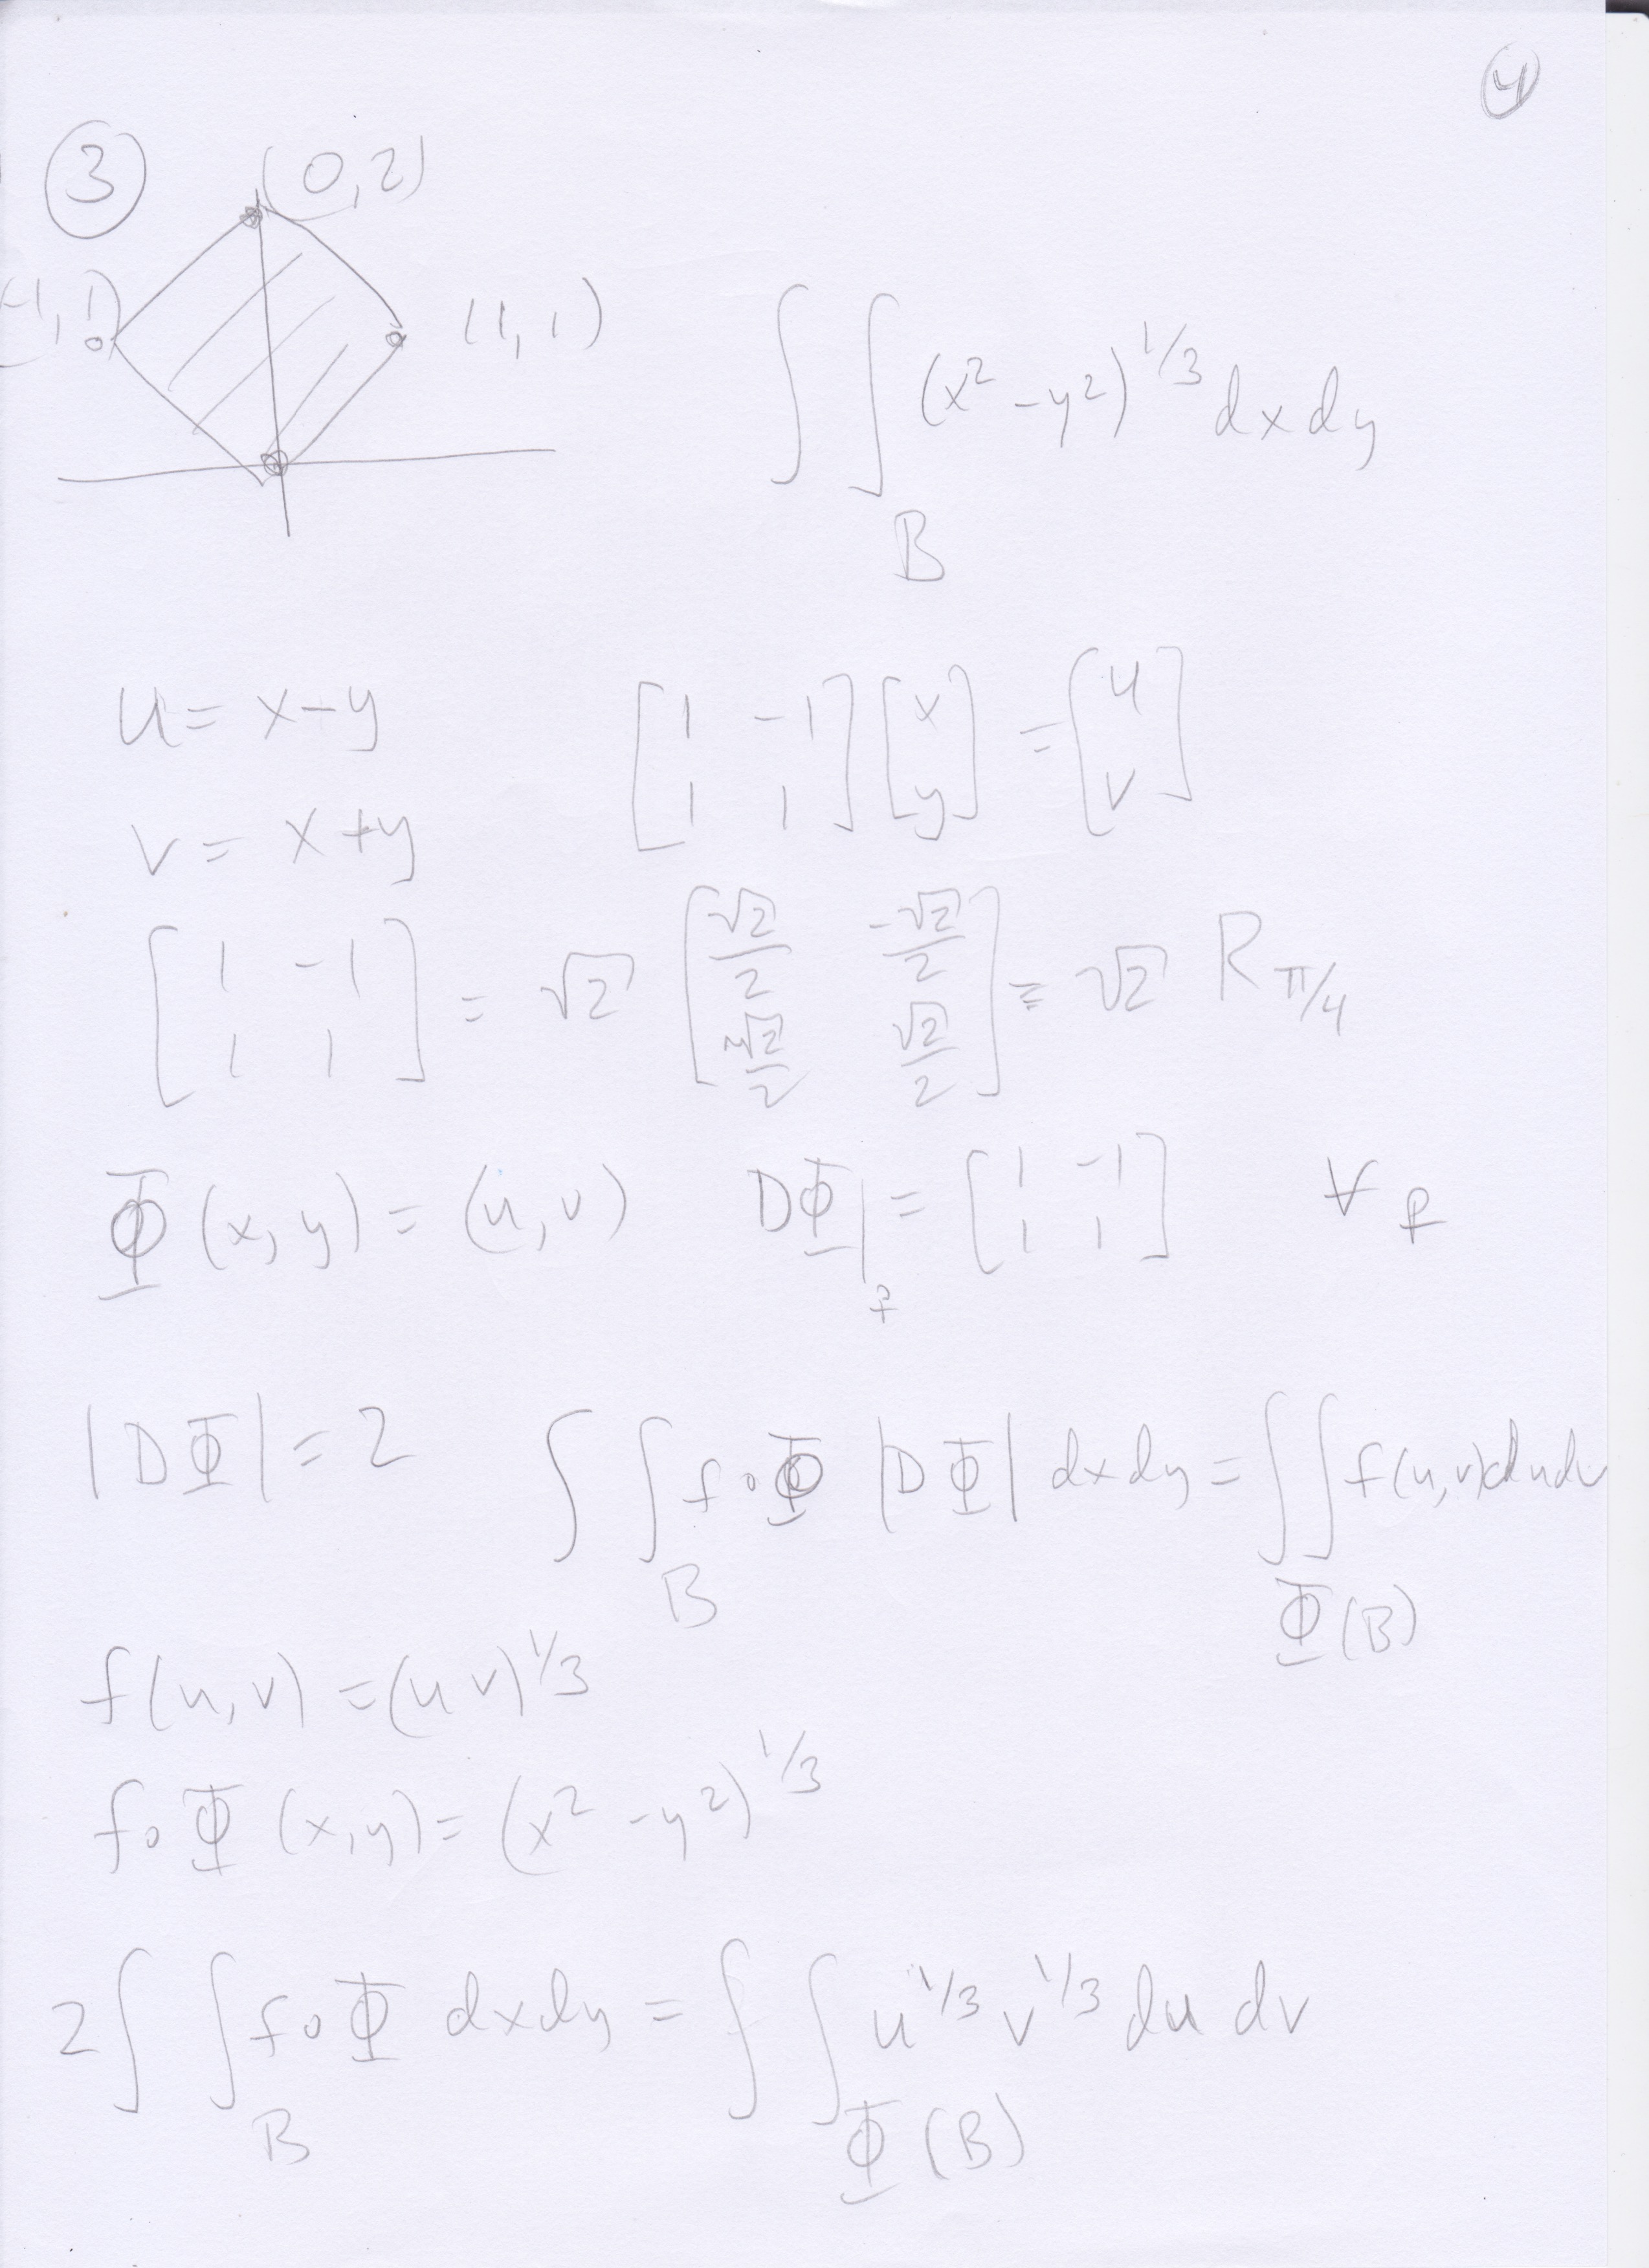 4
③ (0,2)
(-1,1) (1,1)
∫∫_B (x² - y²)^{1/3} dx dy
u = x-y [1 -1; 1 1] [x; y] = [u; v]
v = x+y
[1 -1; 1 1] = √2 [√2/2 -√2/2; √2/2 √2/2] = √2 R_{π/4}
Φ(x, y) = (u, v) DΦ|_p = [1 -1; 1 1] ∀ p
|DΦ| = 2 ∫∫_B f∘Φ |DΦ| dx dy = ∫∫_{Φ(B)} f(u,v) du dv
f(u, v) = (u v)^{1/3}
f∘Φ (x, y) = (x² - y²)^{1/3}
2∫∫_B f∘Φ dx dy = ∫∫_{Φ(B)} u^{1/3} v^{1/3} du dv